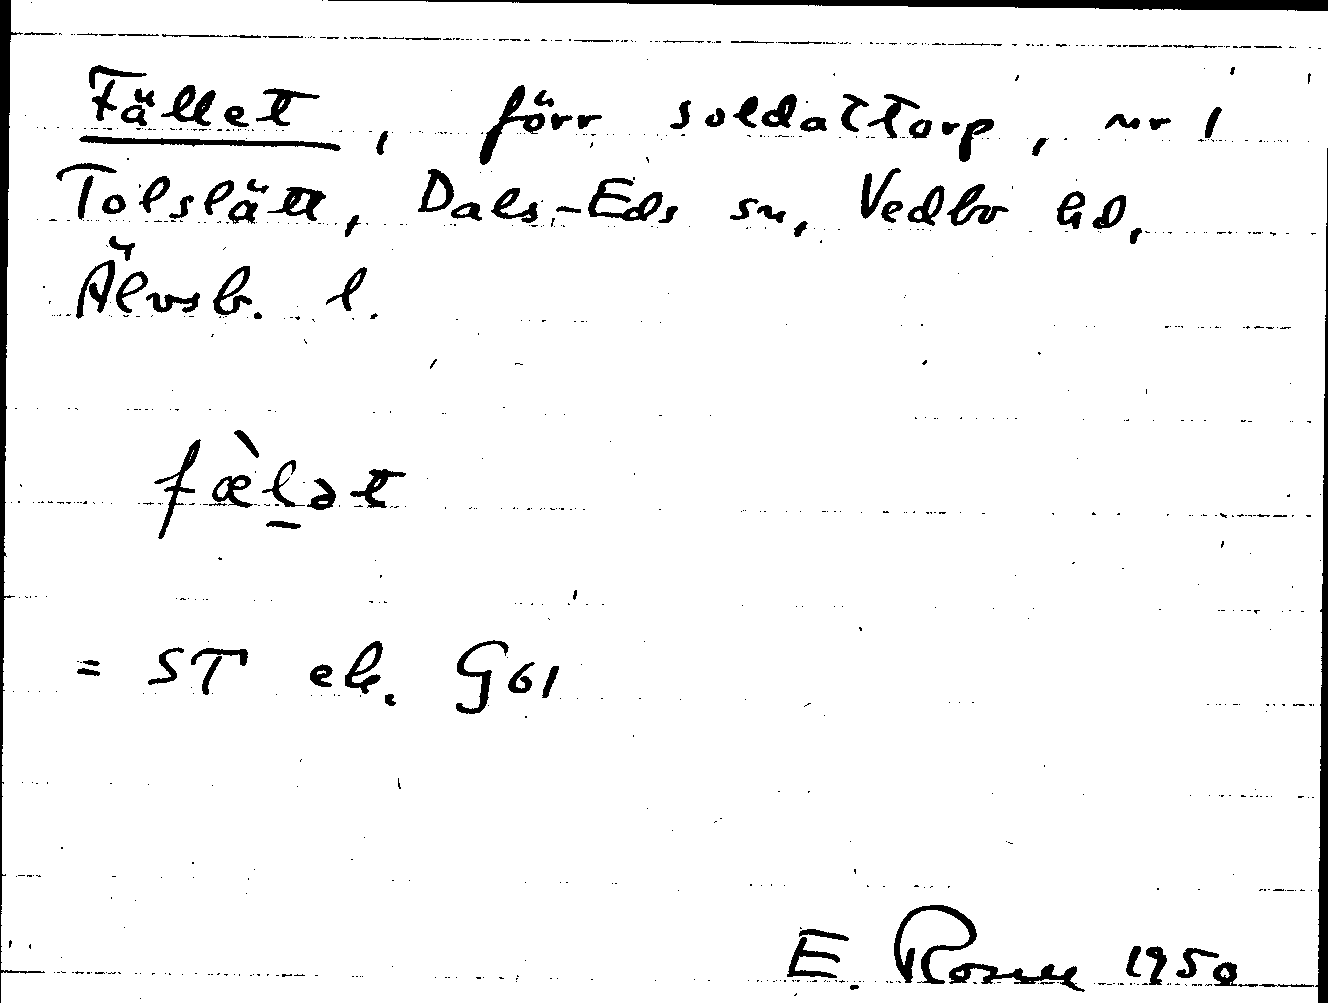 Fället, förr soldattorp, nr 1
Tolslätt, Dals-Eds sn, Vedbo hd,
Älvsb. l.
fæ̀l̠ət
= ST ek. G61
E. Rosell 1950